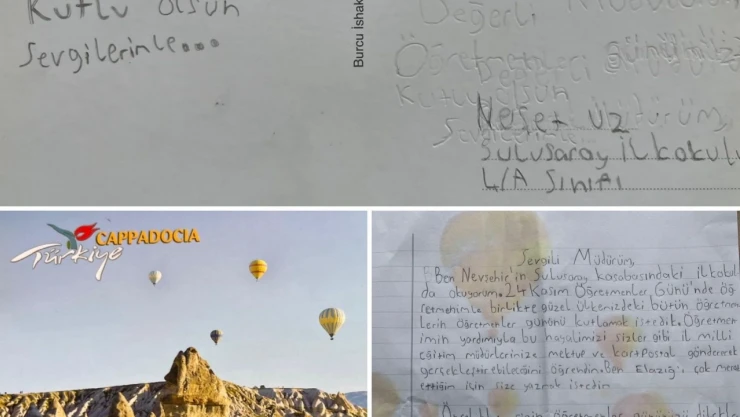 Kutlu olsun
Sevgilerinle...
Burcu İshak
Değerli
Öğretmenleri gününüz
Kutlu olsun
Neşet Uz
Sulusaray İlkokulu
4/A Sınıfı
CAPPADOCIA
Türkiye
Sevgili Müdürüm,
Ben Nevşehir'in Sulusaray kasabasındaki ilkokul
da okuyorum. 24 Kasım Öğretmenler Günü'nde öğ
retmenimle birlikte güzel ülkemizdeki bütün öğretmen
lerin öğretmenler gününü kutlamak istedik. Öğretmen
imin yardımıyla bu hayalimizi sizler gibi il milli
eğitim müdürlerinize mektup ve kartpostal göndererek
gerçekleştirebileceğimi öğrendim. Ben Elazığ'ı çok merak
ettiğim için size yazmak istedim